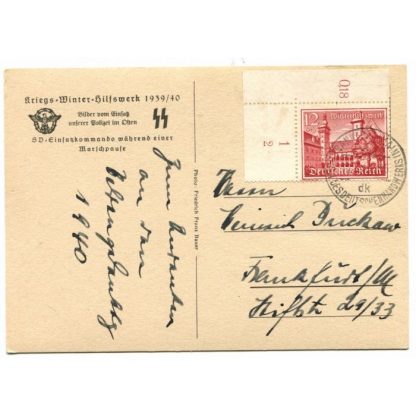 Kriegs-Winter-Hilfswerk 1939/40
Bilder vom Einsatz
unserer Polizei im Osten
SD-Einsatzkommando während einer
Marschpause
Zum Andenken
an den
1940
Photo: Friedrich Franz Bauer
Q18
1 2
12
Winterhilfswerk
Deutsches Reich
dk
Herrn
Heinrich
Frankfurt/M
29/33